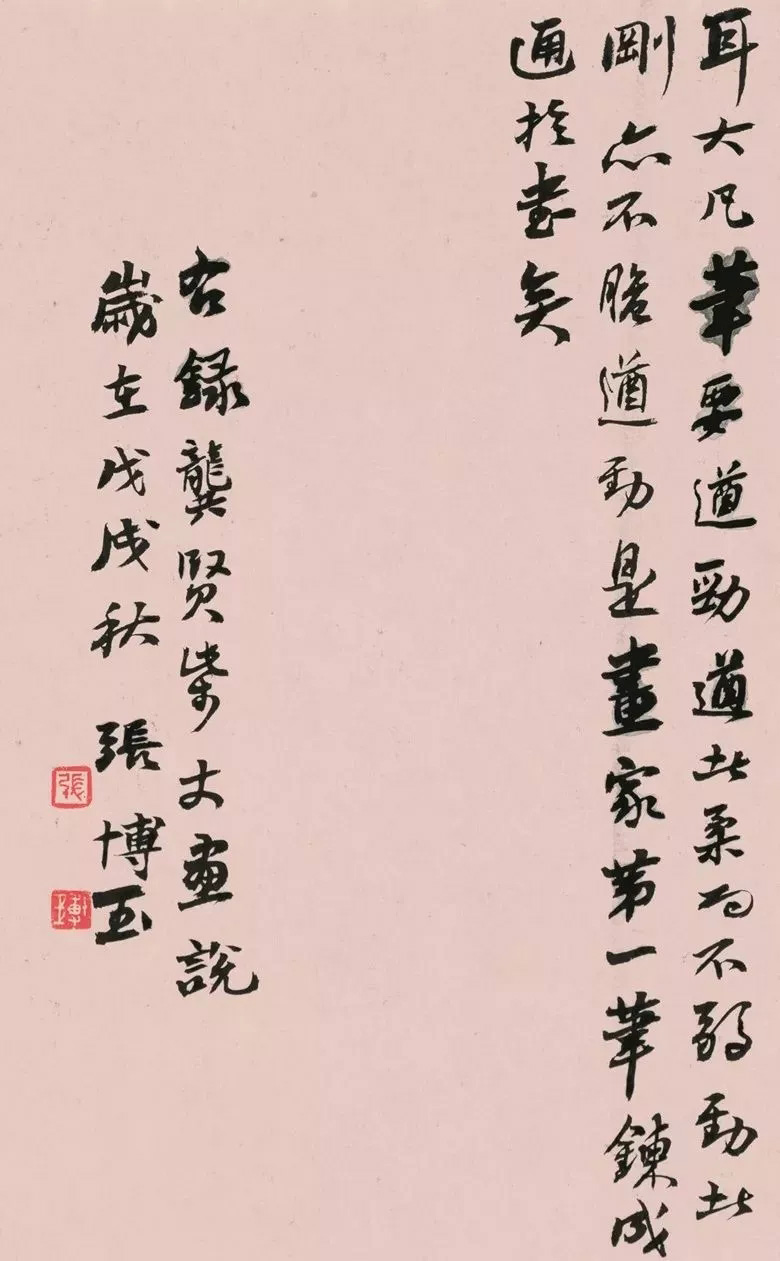 耳大凡筆要遒勁遒者柔而不弱勁者
剛亦不脆遒勁是畫家第一筆鍊成
通於書矣
右錄龔賢柴丈畫說
歲在戊戌秋 張博玉
張
博玉